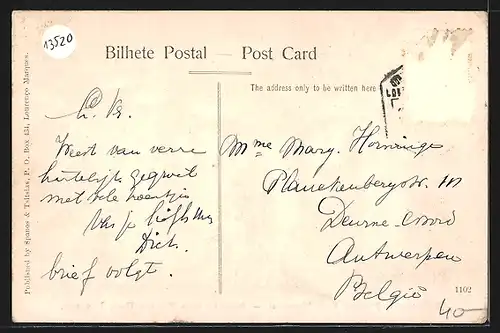 13520
Bilhete Postal — Post Card
The address only to be written here
L. B.
Weest van verre
hartelijk gegroet
met vele zoentjes
Dick.
brief volgt.
Mme Mary. Horninge
Planckenbergstr. 111
Deurne-Noord
Antwerpen
België
1102
40-
Published by Spanos & Tsitsias, P. O. Box 434, Lourenço Marques.